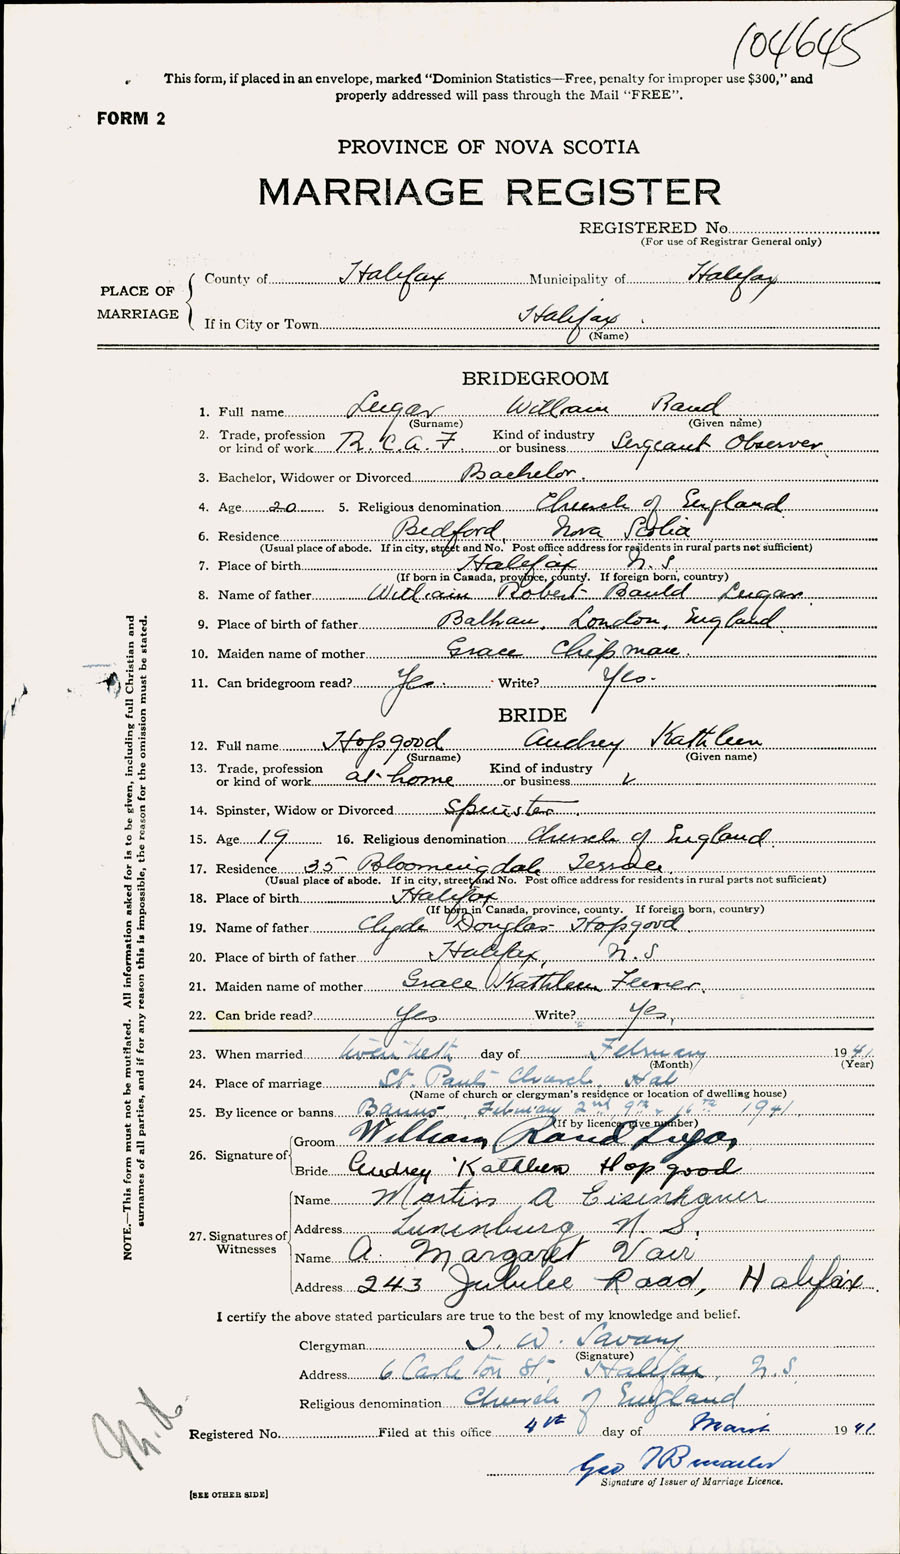 104645
This form, if placed in an envelope, marked “Dominion Statistics—Free, penalty for improper use $300,” and
properly addressed will pass through the Mail “FREE”.
FORM 2
PROVINCE OF NOVA SCOTIA
MARRIAGE REGISTER
REGISTERED No
(For use of Registrar General only)
PLACE OF MARRIAGE
County of Halifax Municipality of Halifax
If in City or Town Halifax
(Name)
BRIDEGROOM
1. Full name Lugar William Rand
(Surname) (Given name)
2. Trade, profession or kind of work R.C.A.F. Kind of industry or business Sergeant Observer
3. Bachelor, Widower or Divorced Bachelor.
4. Age 20 5. Religious denomination Church of England
6. Residence Bedford, Nova Scotia
(Usual place of abode. If in city, street and No. Post office address for residents in rural parts not sufficient)
7. Place of birth Halifax N.S.
(If born in Canada, province, county. If foreign born, country)
8. Name of father William Robert Bauld Lugar.
9. Place of birth of father Balham, London, England.
10. Maiden name of mother Grace Chipman.
11. Can bridegroom read? Yes. Write? Yes.
BRIDE
12. Full name Hopgood Audrey Kathleen
(Surname) (Given name)
13. Trade, profession or kind of work at home Kind of industry or business
14. Spinster, Widow or Divorced Spinster
15. Age 19 16. Religious denomination Church of England.
17. Residence 35 Bloomingdale Terrace.
(Usual place of abode. If in city, street and No. Post office address for residents in rural parts not sufficient)
18. Place of birth Halifax
(If born in Canada, province, county. If foreign born, country)
19. Name of father Clyde Douglas Hopgood
20. Place of birth of father Halifax, N.S
21. Maiden name of mother Grace Kathleen
22. Can bride read? Yes Write? Yes,
23. When married twentieth day of February 1941
(Month) (Year)
24. Place of marriage St. Paul's Church, Hal
(Name of church or clergyman's residence or location of dwelling house)
25. By licence or banns Banns February 2nd 9th & 16th 1941
(If by licence, give number)
26. Signature of Groom William Rand Lugar
Bride Audrey Kathleen Hopgood
27. Signatures of Witnesses
Name A
Address Lunenburg N.S.
Name A. Margaret Vair
Address 243 Jubilee Road, Halifax
I certify the above stated particulars are true to the best of my knowledge and belief.
Clergyman T. W. Savary
(Signature)
Address 6 Carleton St, Halifax, N.S
Religious denomination Church of England
Registered No. Filed at this office 4th day of March 1941
Geo
Signature of Issuer of Marriage Licence.
[SEE OTHER SIDE]
NOTE.—This form must not be mutilated. All information asked for is to be given, including full Christian and
surnames of all parties, and if for any reason this is impossible, the reason for the omission must be stated.